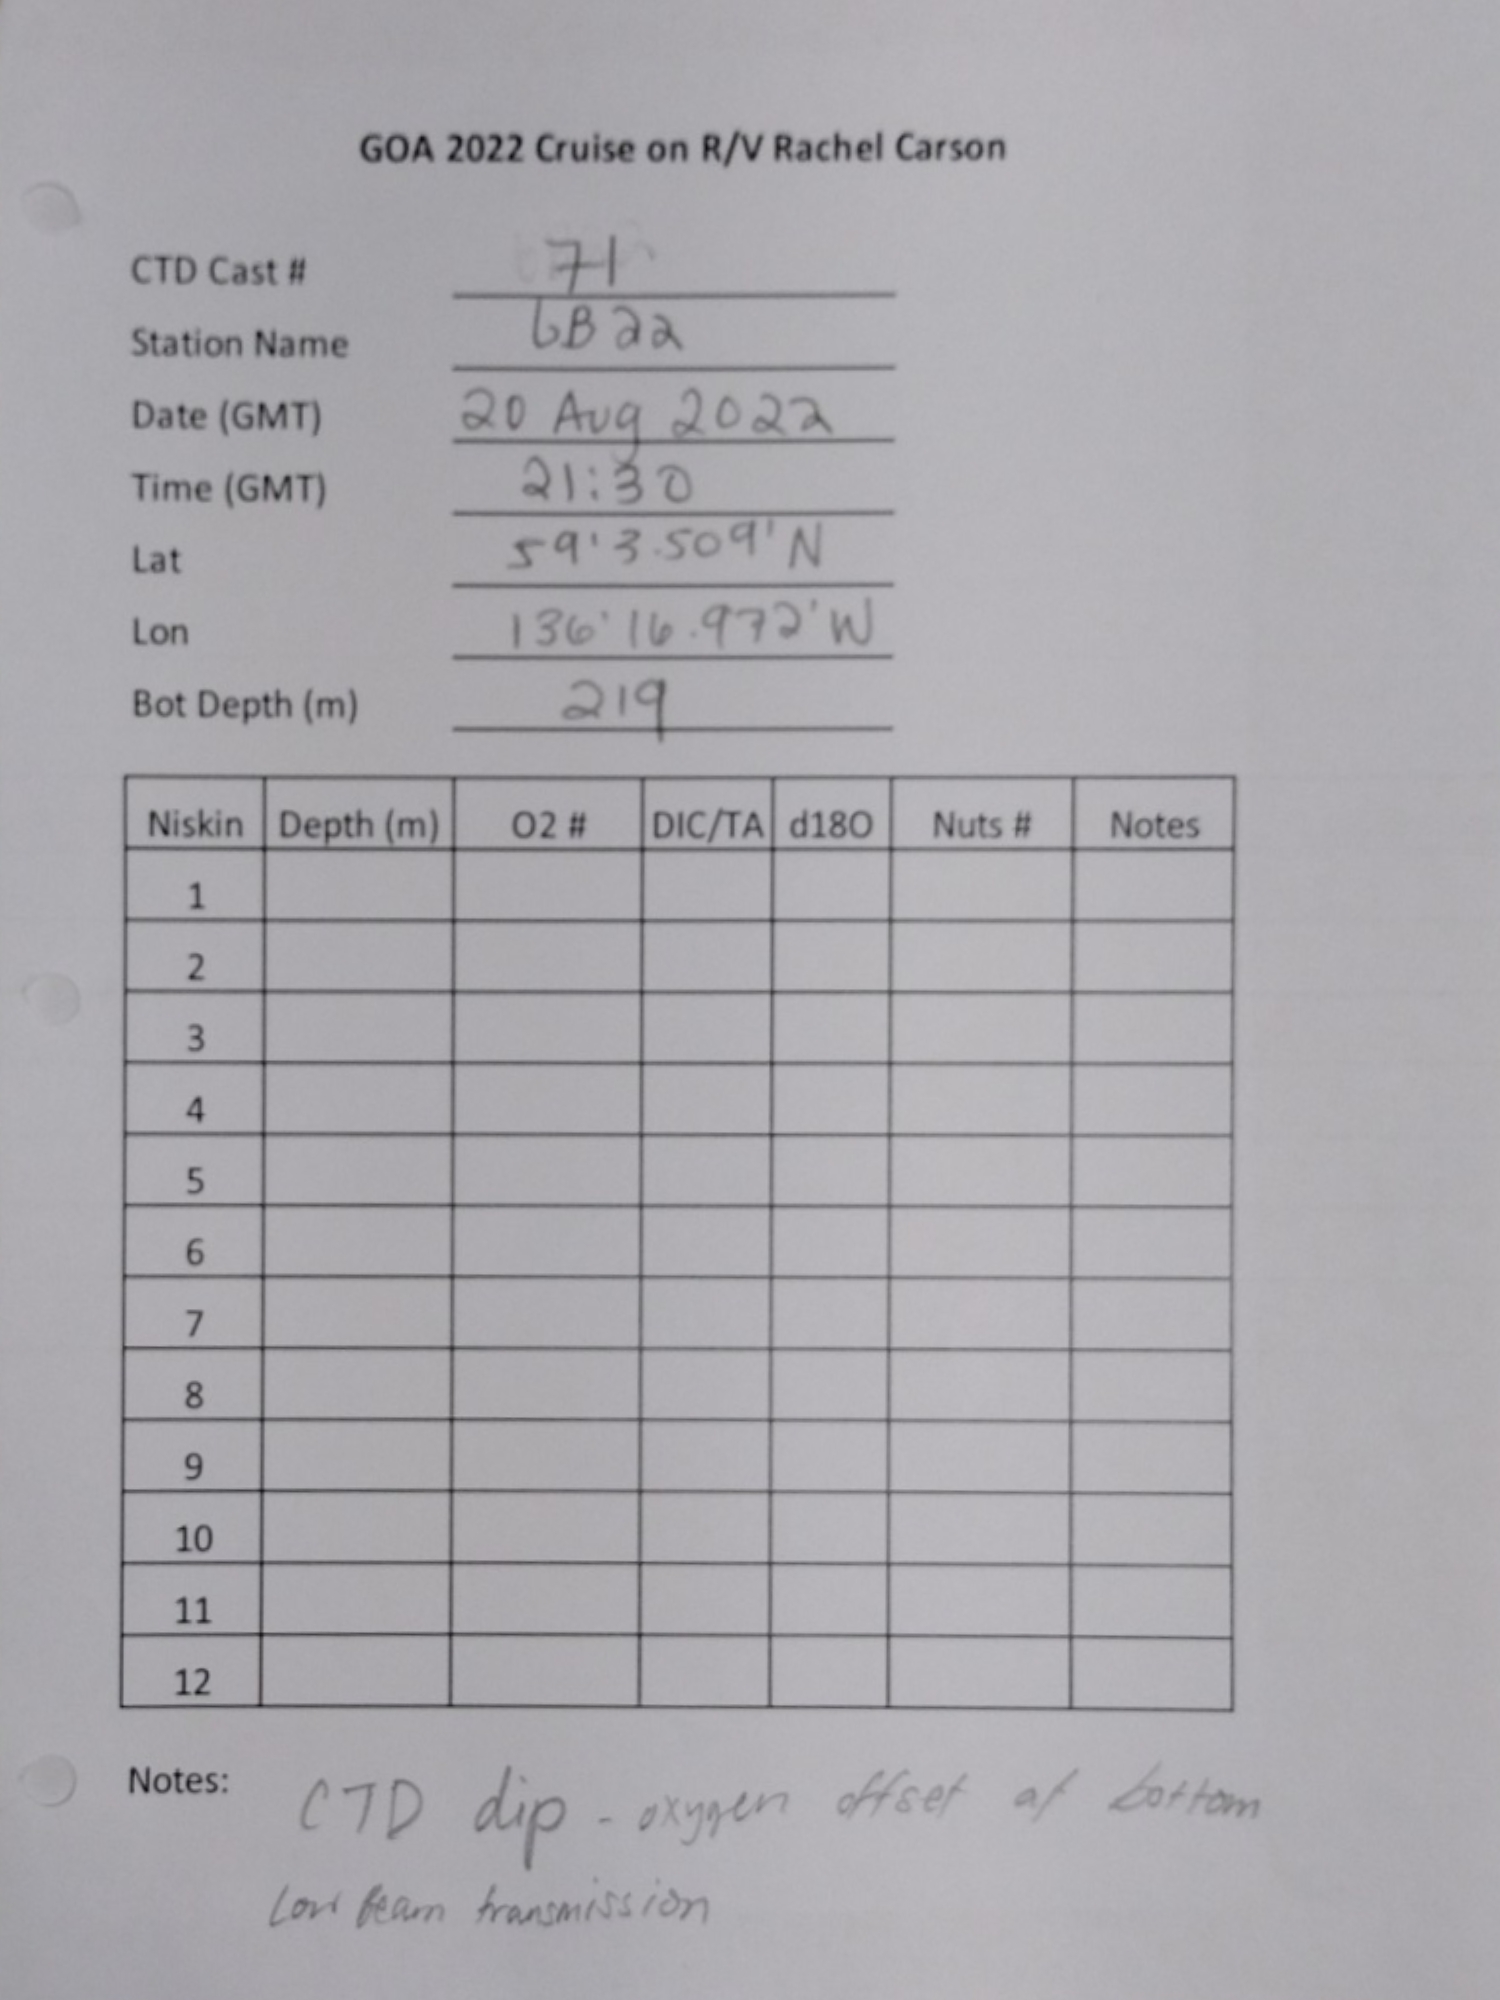 GOA 2022 Cruise on R/V Rachel Carson
CTD Cast # 71
Station Name GB22
Date (GMT) 20 Aug 2022
Time (GMT) 21:30
Lat 59'3.509'N
Lon 136'16.972'W
Bot Depth (m) 219
Niskin Depth (m) O2 # DIC/TA d18O Nuts # Notes
1
2
3
4
5
6
7
8
9
10
11
12
Notes: CTD dip - oxygen offset at bottom
Low beam transmission